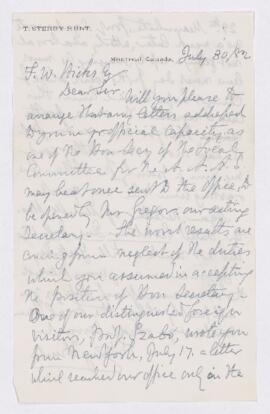 T. STERRY HUNT.
Montreal, Canada. July 30/82
F. W. Hicks Esq
Dear Sir. Will you please to
arrange that any letters addressed
to you in your official capacity as
one of the Hon Secy of the Local
Committee for the A. A. A. S
may be at once sent to the Office, to
be opened by Mr Gregor, our acting
Secretary. The worst results are
arising from neglect of the duties
which you assumed in accepting
the position of Hon Secretary.
One of our distinguished foreign
visitors, Prof. Szabo, wrote you
from New York, July 17. a letter
which reached our office only on the